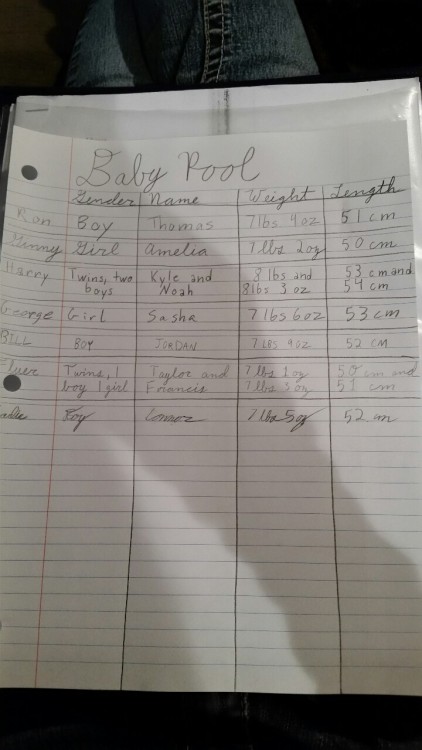 Baby Pool
Gender Name Weight Length
Ron Boy Thomas 7 lbs 4 oz 51 cm
Ginny Girl Amelia 7 lbs 2 oz 50 cm
Harry Twins, two Kyle and 8 lbs and 53 cm and
boys Noah 8 lbs 3 oz 54 cm
George Girl Sasha 7 lbs 6 oz 53 cm
BILL BOY JORDAN 7 LBS 9 OZ 52 CM
Fluer Twins, 1 Taylor and 7 lbs 2 oz 50 cm and
boy 1 girl Francis 7 lbs 3 oz 51 cm
Boy Connor 7 lbs 5 oz 52 cm